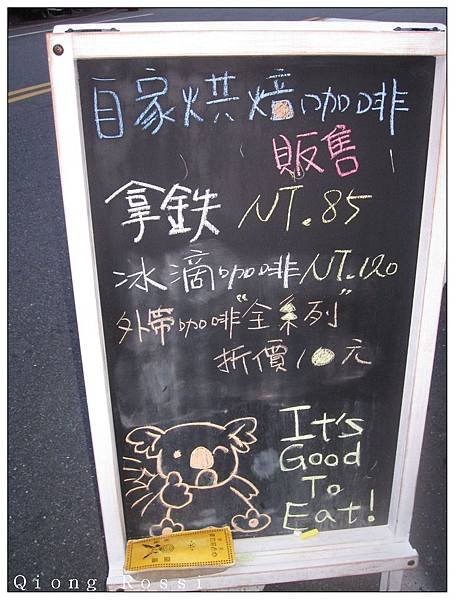 自家烘焙咖啡
販售
拿鉄 NT.85
冰滴咖啡 NT.120
外帶咖啡"全系列"
折價10元
It's
Good
To
Eat!
Qiong Rossi